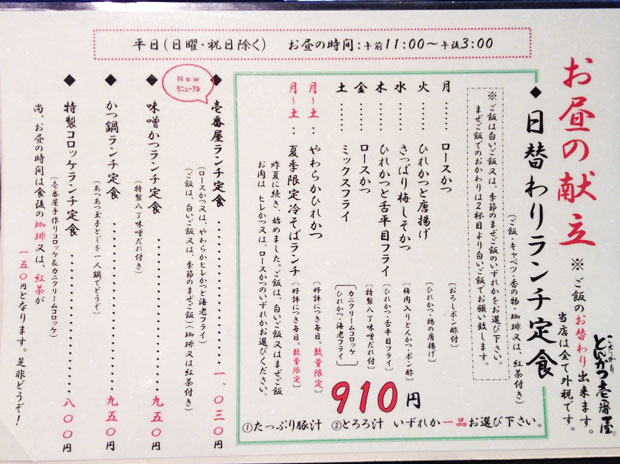 平日(日曜・祝日除く) お昼の時間:午前11:00～午後3:00
お昼の献立
※ご飯のお替わり出来ます。
当店は全て外税です。
こだわり
とんかつ壱番屋
◆日替わりランチ定食
(ご飯・キャベツ・香の物・珈琲又は、紅茶付き)
※ご飯は白いご飯又は、季節のまぜご飯のいずれかをお選び下さい。
まぜご飯でのおかわりは2杯目より白いご飯でお願い致します。
月……ロースかつ [おろしポン酢付]
火……ひれかつと唐揚げ [ひれかつ・鶏の唐揚げ]
水……さっぱり梅しそかつ [梅肉入りとんかつ・ポン酢]
木……ひれかつと舌平目フライ [ひれかつ・舌平目フライ]
金……ロースかつ [特製八丁味噌だれ付]
土……ミックスフライ [カニクリームコロッケ
ひれかつ・海老フライ]
月～土:やわらかひれかつ [好評につき毎日。数量限定]
月～土:夏季限定冷そばランチ [好評につき毎日。数量限定]
昨夏に続き、始めました。ご飯は、白いご飯又はまぜご飯
お肉は、ヒレかつ又は、ロースかつのいずれかお選びください。
910円
①たっぷり豚汁 ②とろろ汁 いずれか一品お選び下さい。
New
リニューアル
◆壱番屋ランチ定食……一、〇三〇円
(ロースかつ又は、やわらかヒレかつと海老フライ)
(ご飯は、白いご飯又は、季節のまぜご飯)(珈琲又は紅茶付き)
◆味噌かつランチ定食……九五〇円
(特製八丁味噌だれ付き)
◆かつ鍋ランチ定食……九五〇円
(あつあつ玉子とじを一人鍋でどうぞ)
◆特製コロッケランチ定食……八〇〇円
(壱番屋手作りコロッケ&カニクリームコロッケ)
尚、お昼の時間は食後の珈琲又は、紅茶が
一五〇円となります。是非どうぞ!